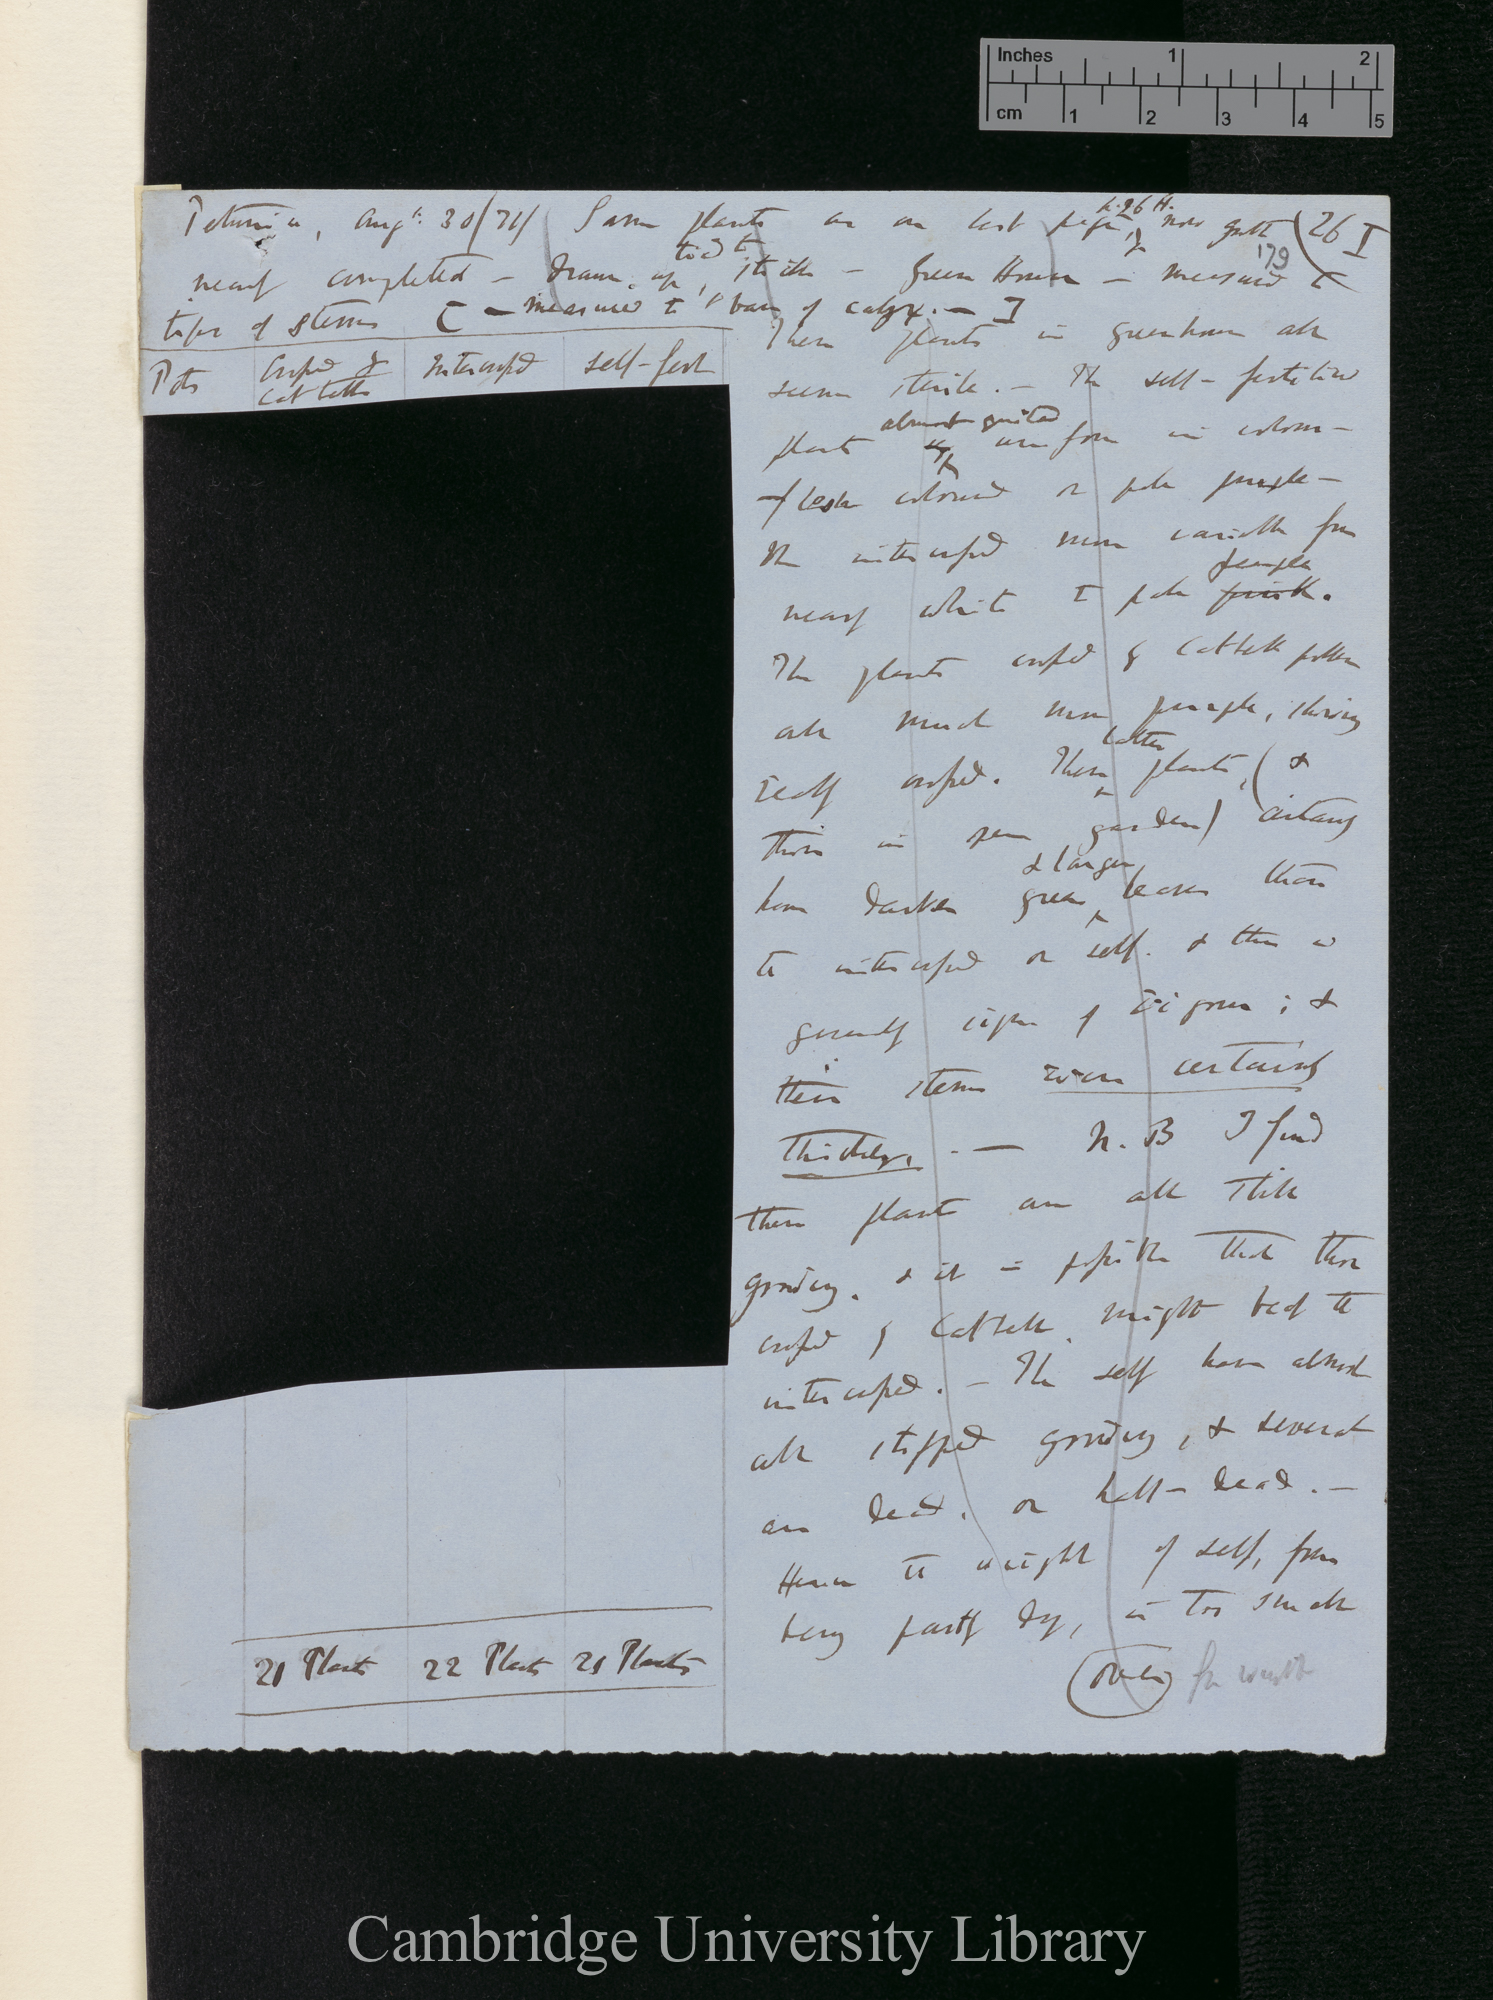 Inches 1 2
cm 1 2 3 4 5
p. 26 H.
Petunia, Augt. 30/71/ Same plants as on last page, now growth (26 I
179
tied to
nearly completed — drawn up, sticks — Green House — measured to
tips of stems [— measured to base of calyx. — ]
Pots
Crossed &
Cattell
Intercrossed
self-fert
These plants in greenhouse all
seem sterile. — The self-fertilised
almost quite
plants uniform in colour —
flesh coloured or pale purple —
The intercrossed more variable from
purple
nearly white to pale pink.
The plants crossed by Cattell pollen
all much more purple, showing
latter
really crossed. These plants, (&
those in open garden) certainly
& larger
have darker green leaves than
the intercrossed or self. & this is
generally sign of vigour; &
their stems even certainly
thicker. — N.B I find
these plants are all still
growing, & it is possible that those
crossed by Cattell might beat the
intercrossed. — The self have almost
all stopped growing, & several
are dead, or half-dead. —
Hence the weight of self, from
being partly dry, is too small
21 Plants
22 Plants
21 Plants
(over) for weight
Cambridge University Library